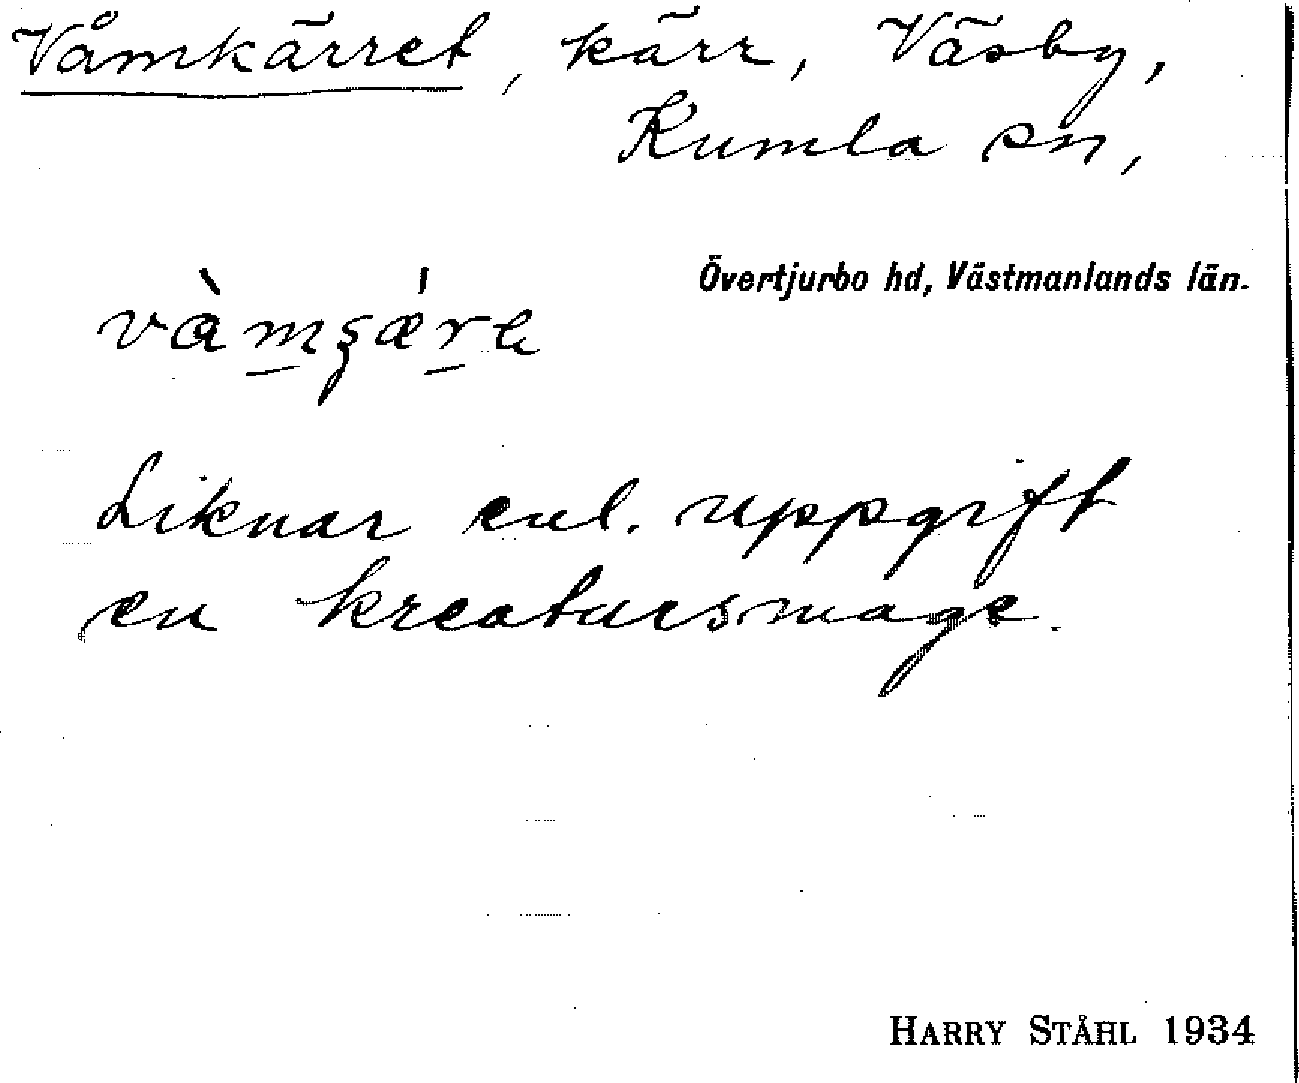 Våmkärret, kärr, Väsby,
Kumla sn,
Övertjurbo hd, Västmanlands län.
vàmʂǽrə
Liknar enl. uppgift
en kreatursmage.
HARRY STÅHL 1934